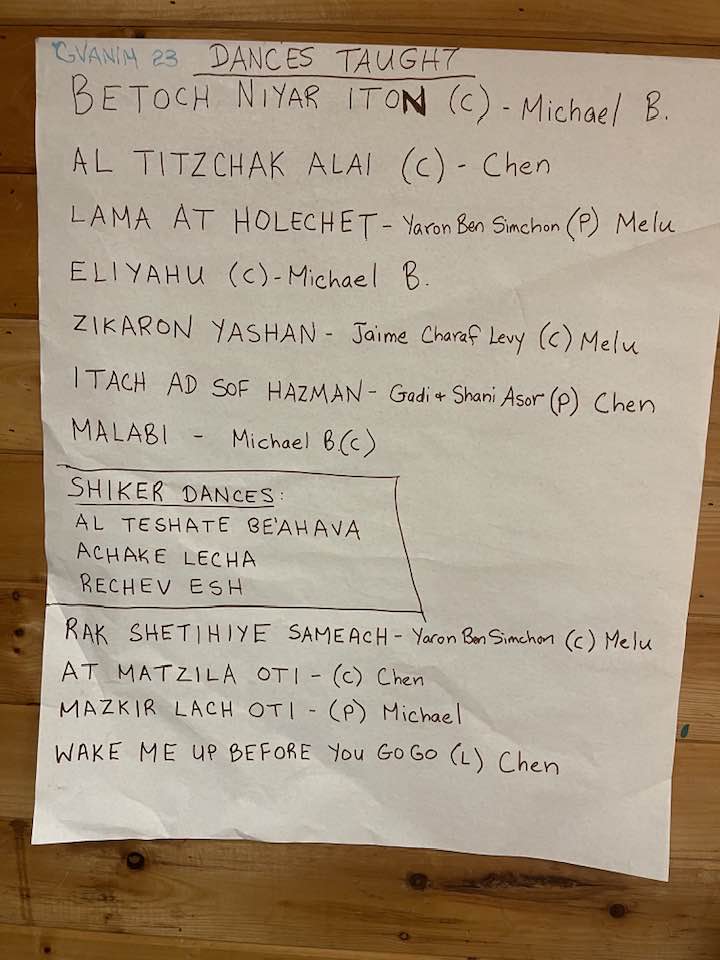 GVANIM 23 DANCES TAUGHT
BETOCH NIYAR ITON (C) - Michael B.
AL TITZCHAK ALAI (C) - Chen
LAMA AT HOLECHET - Yaron Ben Simchon (P) Melu
ELIYAHU (C) - Michael B.
ZIKARON YASHAN - Jaime Charaf Levy (C) Melu
ITACH AD SOF HAZMAN - Gadi + Shani Asor (P) Chen
MALABI - Michael B. (C)
SHIKER DANCES:
AL TESHATE BE'AHAVA
ACHAKE LECHA
RECHEV ESH
RAK SHETIHIYE SAMEACH - Yaron Ben Simchon (C) Melu
AT MATZILA OTI - (C) Chen
MAZKIR LACH OTI - (P) Michael
WAKE ME UP BEFORE YOU GO GO (L) Chen